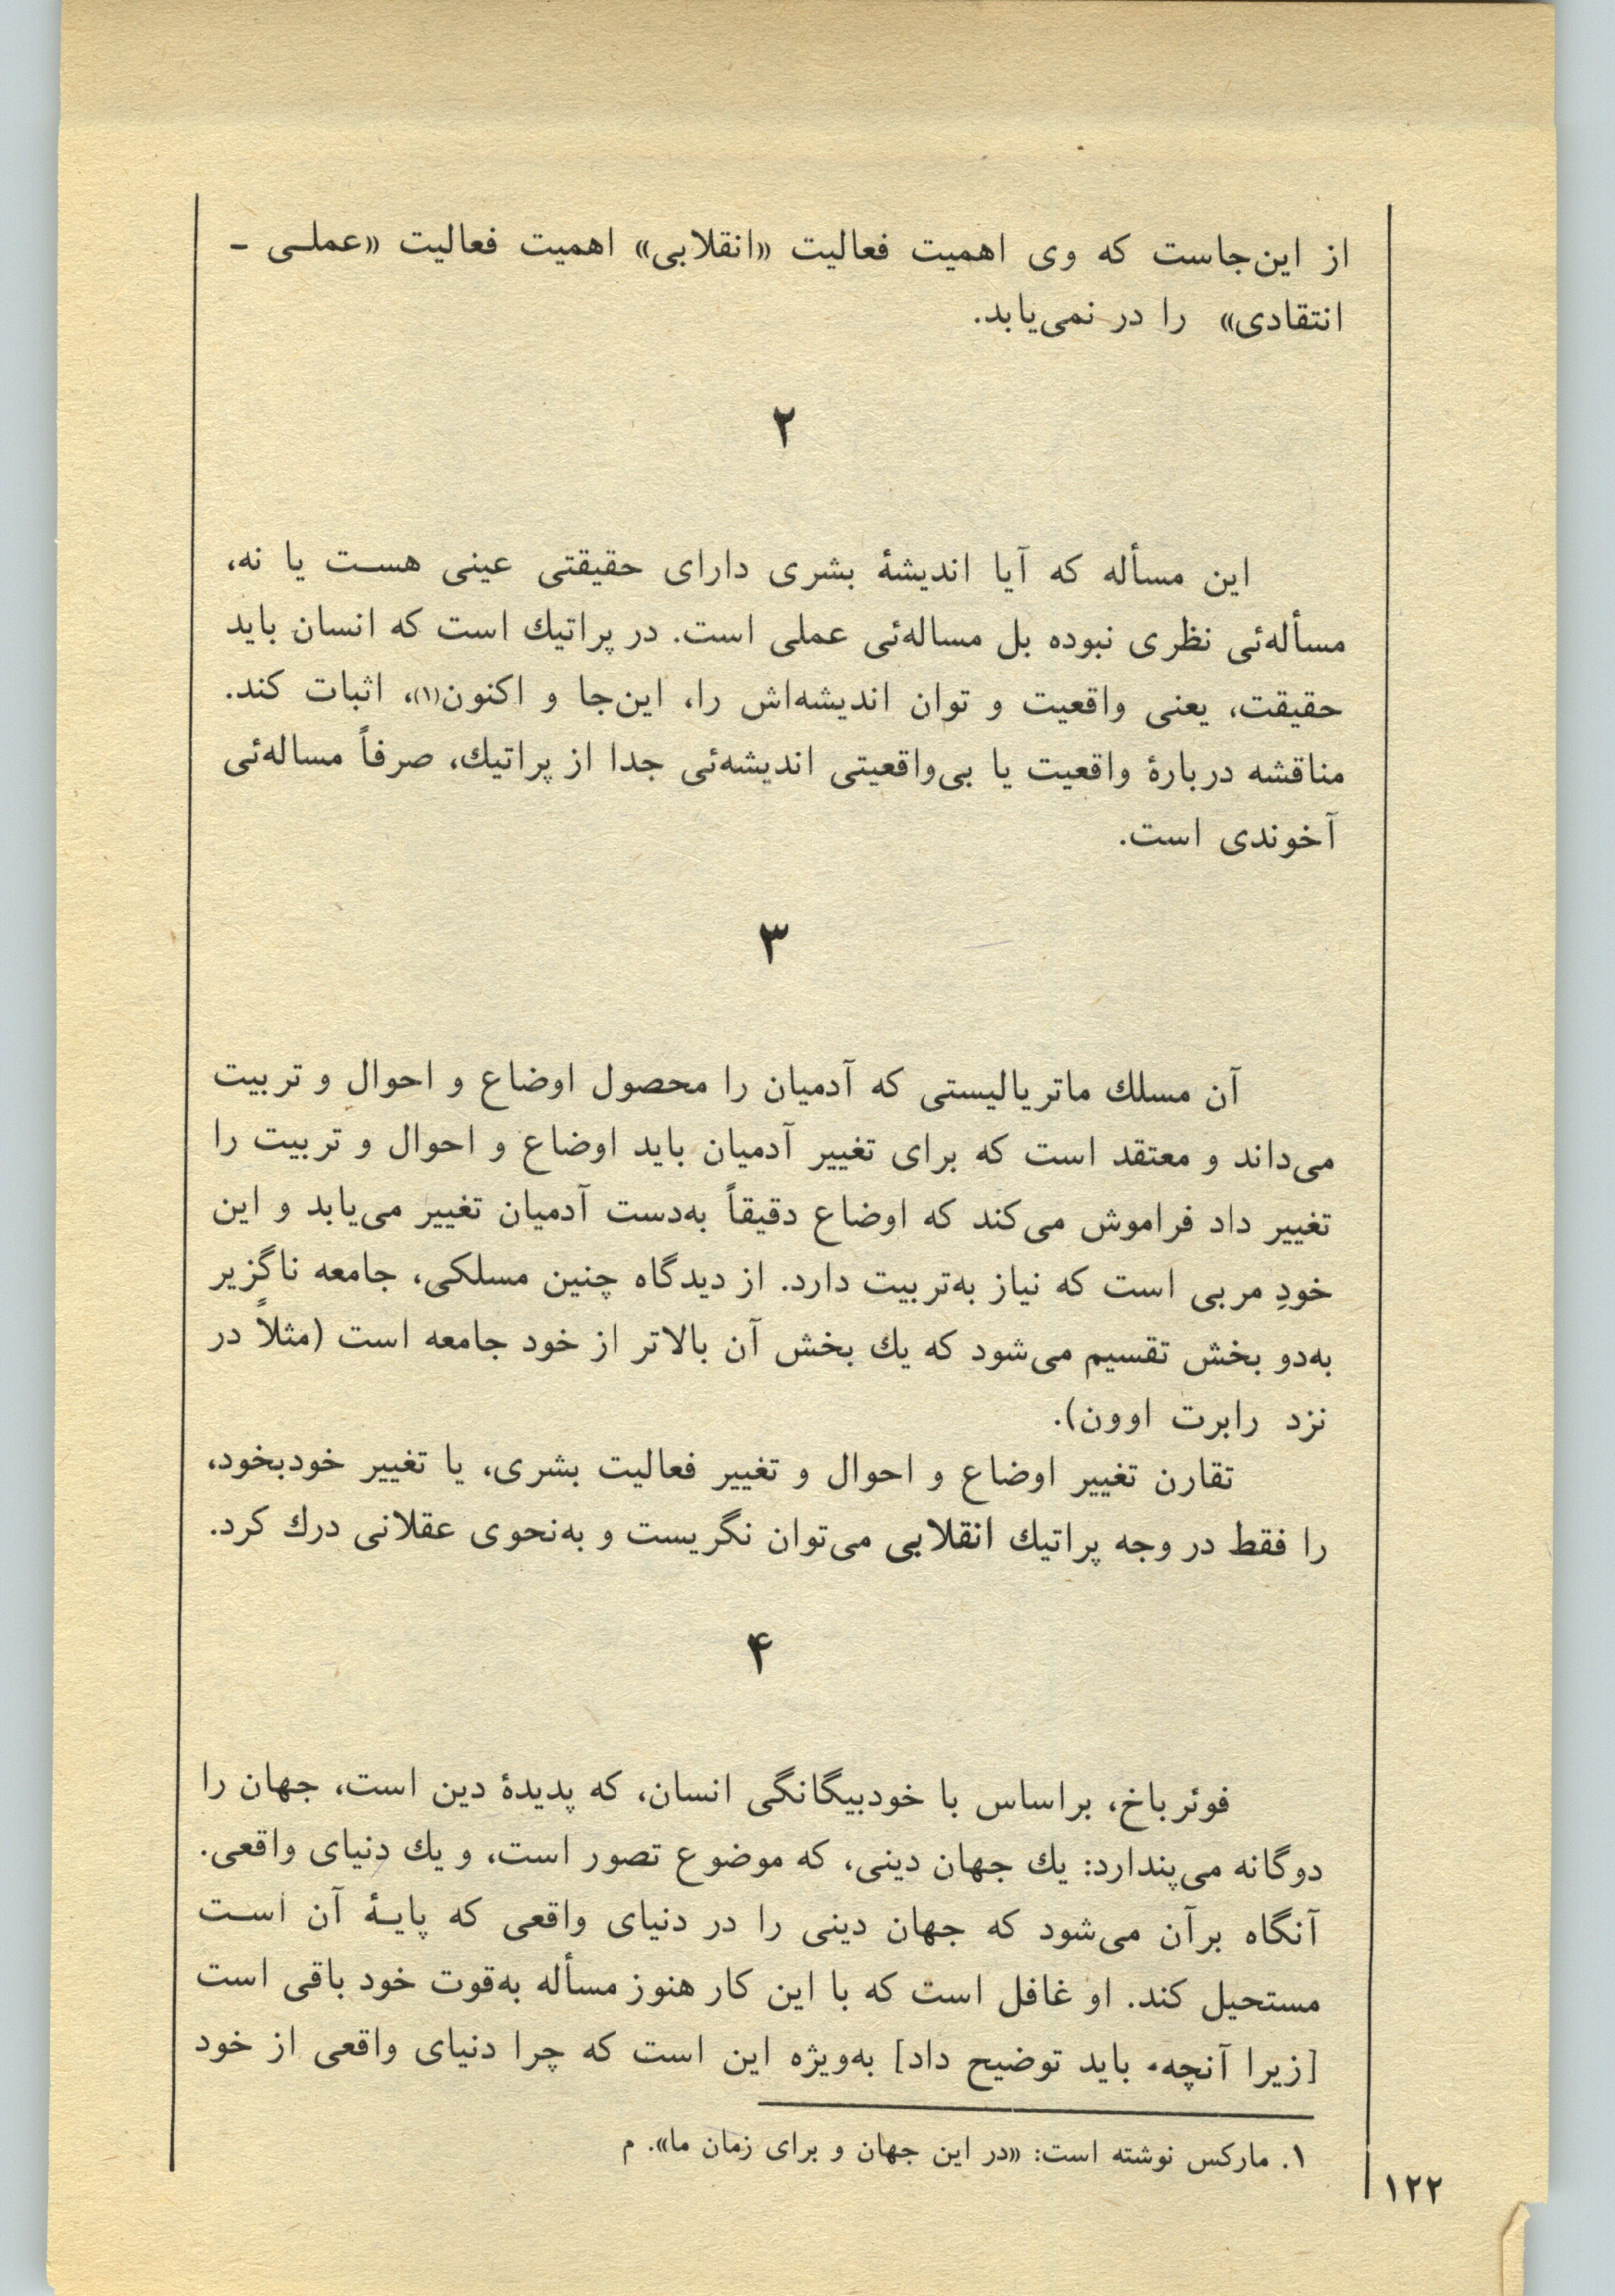 از این‌جاست که وی اهمیت فعالیت «انقلابی» اهمیت فعالیت «عملـی -
انتقادی» را در نمی‌یابد.
۲
این مسأله که آیا اندیشهٔ بشری دارای حقیقتی عینی هسـت یا نه،
مسأله‌ئی نظری نبوده بل مساله‌ئی عملی است. در پراتیك است که انسان باید
حقیقت، یعنی واقعیت و توان اندیشه‌اش را، این‌جا و اکنون(۱)، اثبات کند.
مناقشه دربارهٔ واقعیت یا بی‌واقعیتی اندیشه‌ئی جدا از پراتیك، صرفاً مساله‌ئی
آخوندی است.
۳
آن مسلك ماتریالیستی که آدمیان را محصول اوضاع و احوال و تربیت
می‌داند و معتقد است که برای تغییر آدمیان باید اوضاع و احوال و تربیت را
تغییر داد فراموش می‌کند که اوضاع دقیقاً به‌دست آدمیان تغییر می‌یابد و این
خودِ مربی است که نیاز به‌تربیت دارد. از دیدگاه چنین مسلکی، جامعه ناگزیر
به‌دو بخش تقسیم می‌شود که یك بخش آن بالاتر از خود جامعه است (مثلاً در
نزد رابرت اوون).
تقارن تغییر اوضاع و احوال و تغییر فعالیت بشری، یا تغییر خودبخود،
را فقط در وجه پراتیك انقلابی می‌توان نگریست و به‌نحوی عقلانی درك کرد.
۴
فوئرباخ، براساس با خودبیگانگی انسان، که پدیدهٔ دین است، جهان را
دوگانه می‌پندارد: یك جهان دینی، که موضوع تصور است، و یك دنیای واقعی.
آنگاه برآن می‌شود که جهان دینی را در دنیای واقعی که پایـهٔ آن اسـت
مستحیل کند. او غافل است که با این کار هنوز مسأله به‌قوت خود باقی است
[زیرا آنچه باید توضیح داد] به‌ویژه این است که چرا دنیای واقعی از خود
۱. مارکس نوشته است: «در این جهان و برای زمان ما». م
۱۲۲